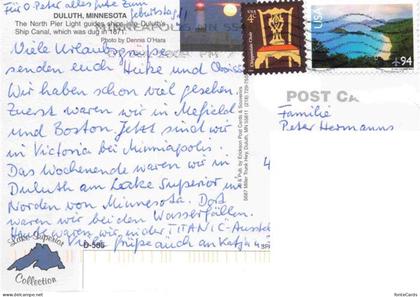 Für O Peter alles Gute Zum Geburtstag!
DULUTH, MINNESOTA
The North Pier Light guides ships into Duluth's
Ship Canal, which was dug in 1871.
Photo by Dennis O'Hara
Viele Urlaubsgrüße
senden euch Heike und
Wir haben schon viel gesehen.
Zuerst waren wir in Mefield
und Boston. Jetzt sind wir
in Victoria bei Minniapolis.
Das Wochenende waren wir in
Duluth am Lacke Superior im
Norden von Minnesota. Dort
waren wir bei den Wasserfällen.
Heute waren wir in der TITANIC-Ausstell
Viele Grüße auch an Katja
D-585
Lake Superior
Collection
4¢
USA
94
POST CA
Familie
Peter Hermanns
Pub. by Erickson Post Cards & Souvenirs
5667 Miller Trunk Hwy, Duluth, MN 55811
FonteCards